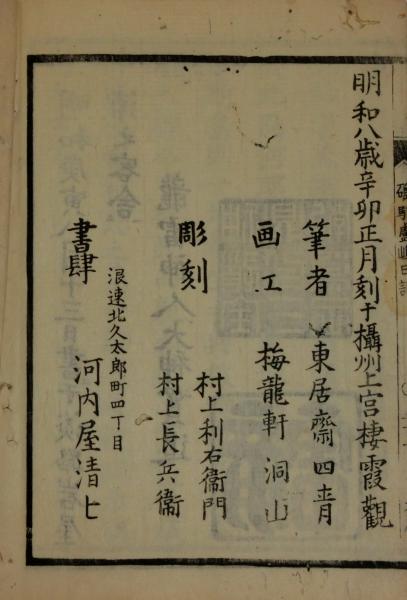 明和八歳辛卯正月刻于攝州上宮棲霞觀
筆者 東居齋四明
画工 梅龍軒洞山
彫刻 村上利右衞門
村上長兵衞
浪速北久太郎町四丁目
書肆 河内屋清七